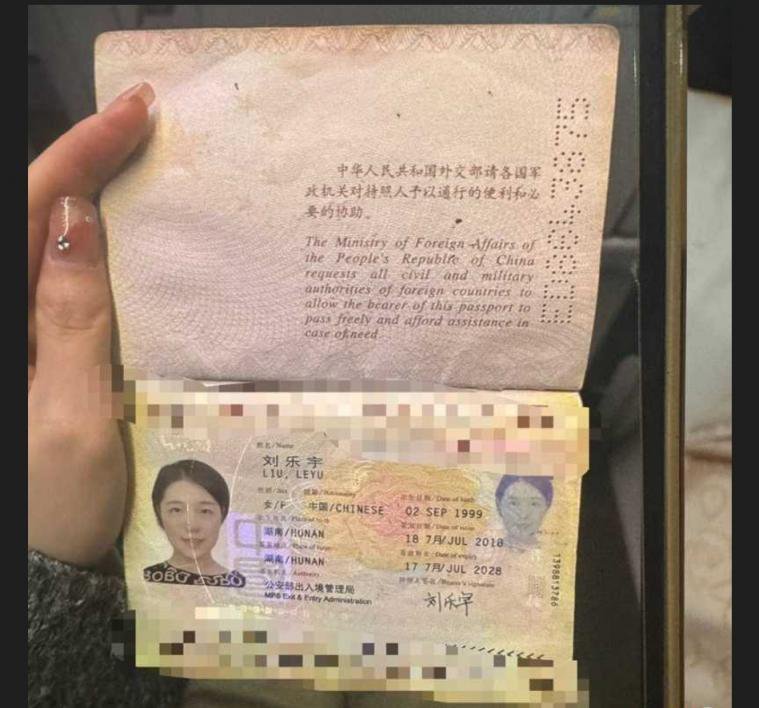 中华人民共和国外交部请各国军
政机关对持照人予以通行的便利和必
要的协助。
The Ministry of Foreign Affairs of
the People's Republic of China
requests all civil and military
authorities of foreign countries to
allow the bearer of this passport to
pass freely and afford assistance in
case of need
姓名/Name
刘乐宇
LIU, LEYU
性别/Sex 国籍/Nationality 出生日期/Date of birth
女/F 中国/CHINESE 02 SEP 1999
出生地点/Place of birth 签发日期/Date of issue
湖南/HUNAN 18 7月/JUL 2018
签发地点/Place of issue 有效期至/Date of expiry
湖南/HUNAN 17 7月/JUL 2028
签发机关/Authority 持照人签名/Bearer's signature
公安部出入境管理局
MPS Exit & Entry Administration
刘乐宇